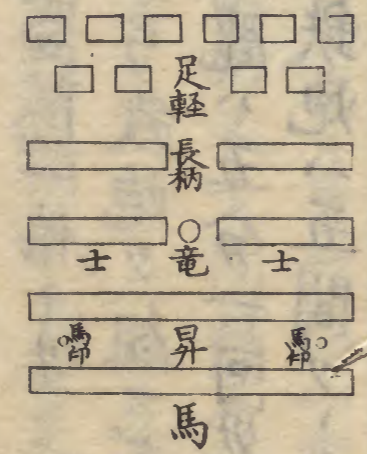 足軽
長柄
士 竜 士
馬印 昇 馬印
馬